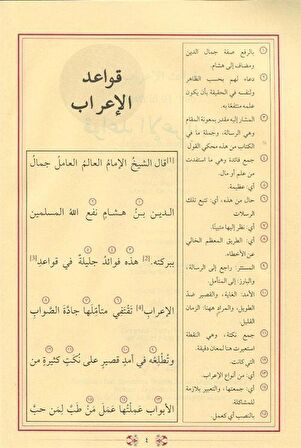 قواعد
الإعراب
[1] قال الشيخُ الإمامُ العالمُ العاملُ جمالُ
الديـن بـنُ هشـامٍ نفع اللهُ المسلمين
ببركته: [2] هذه فوائدُ جليلةٌ في قواعدِ [3]
الإعرابِ [4] تَقْتَفي متأمِّلَها جادّةَ الصَّوابِ
وتُطْلِعُه في أمدٍ قصيرٍ على نُكَتٍ كثيرةٍ من
الأبوابِ عَمِلْتُها عَمَلَ مَن طَبَّ لِمَن حَبَّ
بالرفع صفة جمال الدين
ومضاف إلى هشام.
دعاء لهم بحسب الظاهر
ولنفسه في الحقيقة بأن يكون
علمه منتفعًا به.
المشار إليه مقدر بمعونة المقام
وهي الرسالة، وجملة ما في
الكتاب من هذه محكي القول
جمع فائدة وهي ما استفدت
من علم أو مال.
أي: عظيمة.
حال من هذه، أي: تتبع تلك
الرسالات
أي: نظر إليها متبينًا.
أي: الطريق المعظم الخالي
عن الأخطاء.
المستتر: راجع إلى الرسالة،
والبارز: إلى المتأمل.
الأمد: الغاية، والقصير ضدّ
الطويل، والمراد ههنا: الزمان
القليل.
جمع نكتة، وهي النقطة
استعيرت هنا لمعان دقيقة.
التي كانت.
أي: من أنواع الإعراب.
أي: جمعتها، والتعبير بلازمة
للمشاكلة.
بالنصب أي كعمل.
٤